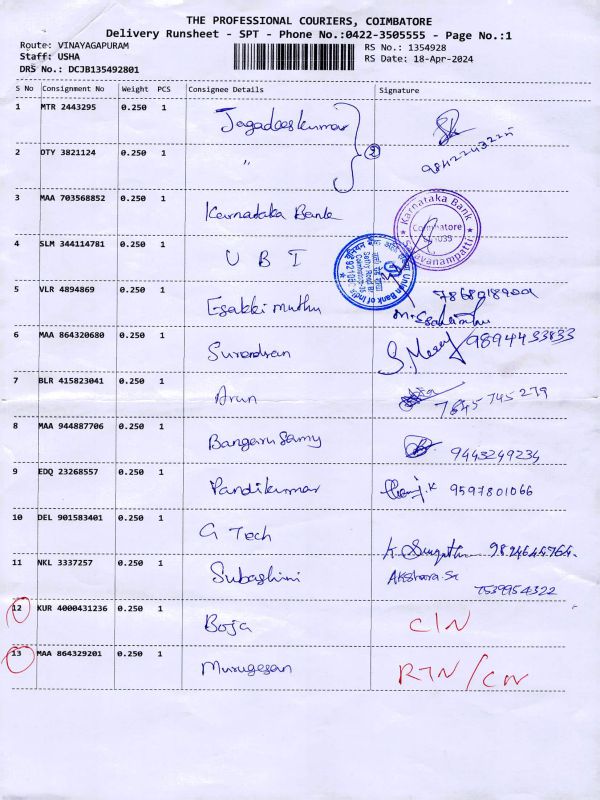 THE PROFESSIONAL COURIERS, COIMBATORE
Delivery Runsheet - SPT - Phone No.:0422-3505555 - Page No.:1
Route: VINAYAGAPURAM RS No.: 1354928
Staff: USHA RS Date: 18-Apr-2024
DRS No.: DCJB135492801
S No Consignment No Weight PCS Consignee Details Signature
1 MTR 2443295 0.250 1 Jagadeeskumar
2 DTY 3821124 0.250 1 " 2
3 MAA 703568852 0.250 1 Karnataka Bank Karnataka Bank Coimbatore Saravanampatti
4 SLM 344114781 0.250 1 U B I Union Bank of India
5 VLR 4894869 0.250 1 Esakki muthu
6 MAA 864320680 0.250 1 Surendran 9894433833
7 BLR 415823041 0.250 1 Arun 7645745279
8 MAA 944887706 0.250 1 Bangarusamy 9443249234
9 EDQ 23268557 0.250 1 Pandikumar 9597801066
10 DEL 901583401 0.250 1 G Tech
11 NKL 3337257 0.250 1 Subashini Akshara.Sr
7539954322
12 KUR 4000431236 0.250 1 Boja CIN
13 MAA 864329201 0.250 1 Murugesan RTN/CN